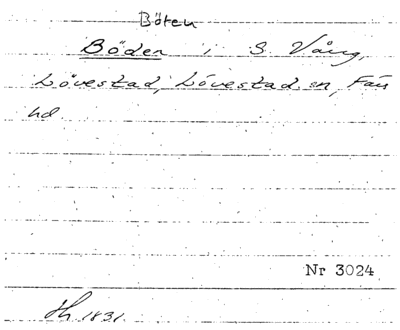 Böten
Böden i S. Vång,
Lövestad, Lövestad sn, Färs
hd.
Nr 3024
Lh 1831